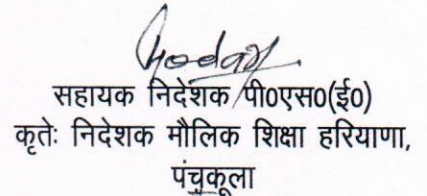 सहायक निदेशक पी0एस0(ई0)
कृतेः निदेशक मौलिक शिक्षा हरियाणा,
पंचुकूला